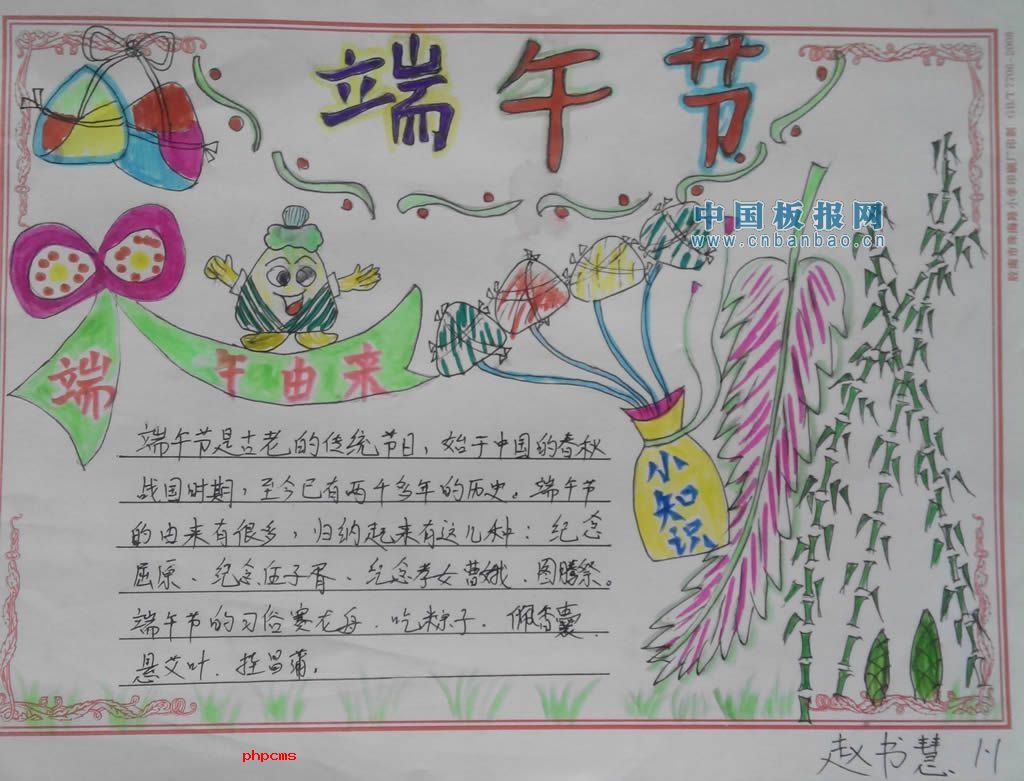 端午节
中国板报网
www.cnbanbao.cn
端午由来
端午节是古老的传统节日，始于中国的春秋
战国时期，至今已有两千多年的历史。端午节
的由来有很多，归纳起来有这几种：纪念
屈原、纪念伍子胥、纪念孝女曹娥、图腾祭。
端午节的习俗赛龙舟、吃粽子、佩香囊、
悬艾叶、挂菖蒲。
小知识
phpcms
赵书慧 1.1
GB/T 7706-2008